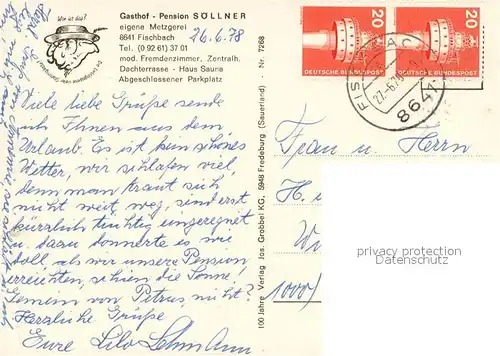 Wer ist das?
Gasthof - Pension SÖLLNER
eigene Metzgerei
8641 Fischbach
Tel. (0 92 61) 37 01
mod. Fremdenzimmer, Zentralh.
Dachterrasse - Haus Sauna
Abgeschlossener Parkplatz
26.6.78
Viele liebe Grüße sende
ich Ihnen aus dem
Urlaub. Es ist kein schönes
Wetter, wir schlafen viel,
denn man traut sich
nicht weit weg, sind erst
kürzlich tüchtig eingeregnet
u. dazu donnerte es wie
toll als wir unsere Pension
erreichten, schien die Sonne!
Gemein von Petrus nicht?
Herzliche Grüße
Eure Lilo Lehmann
100 Jahre Verlag Jos. Grobbel KG, 5948 Fredeburg (Sauerland) - Nr. 7268
20
DEUTSCHE BUNDESPOST
20
DEUTSCHE BUNDESPOST
27.-6.78
8641
Frau u. Herrn
H.
W
1000
privacy protection
Datenschutz